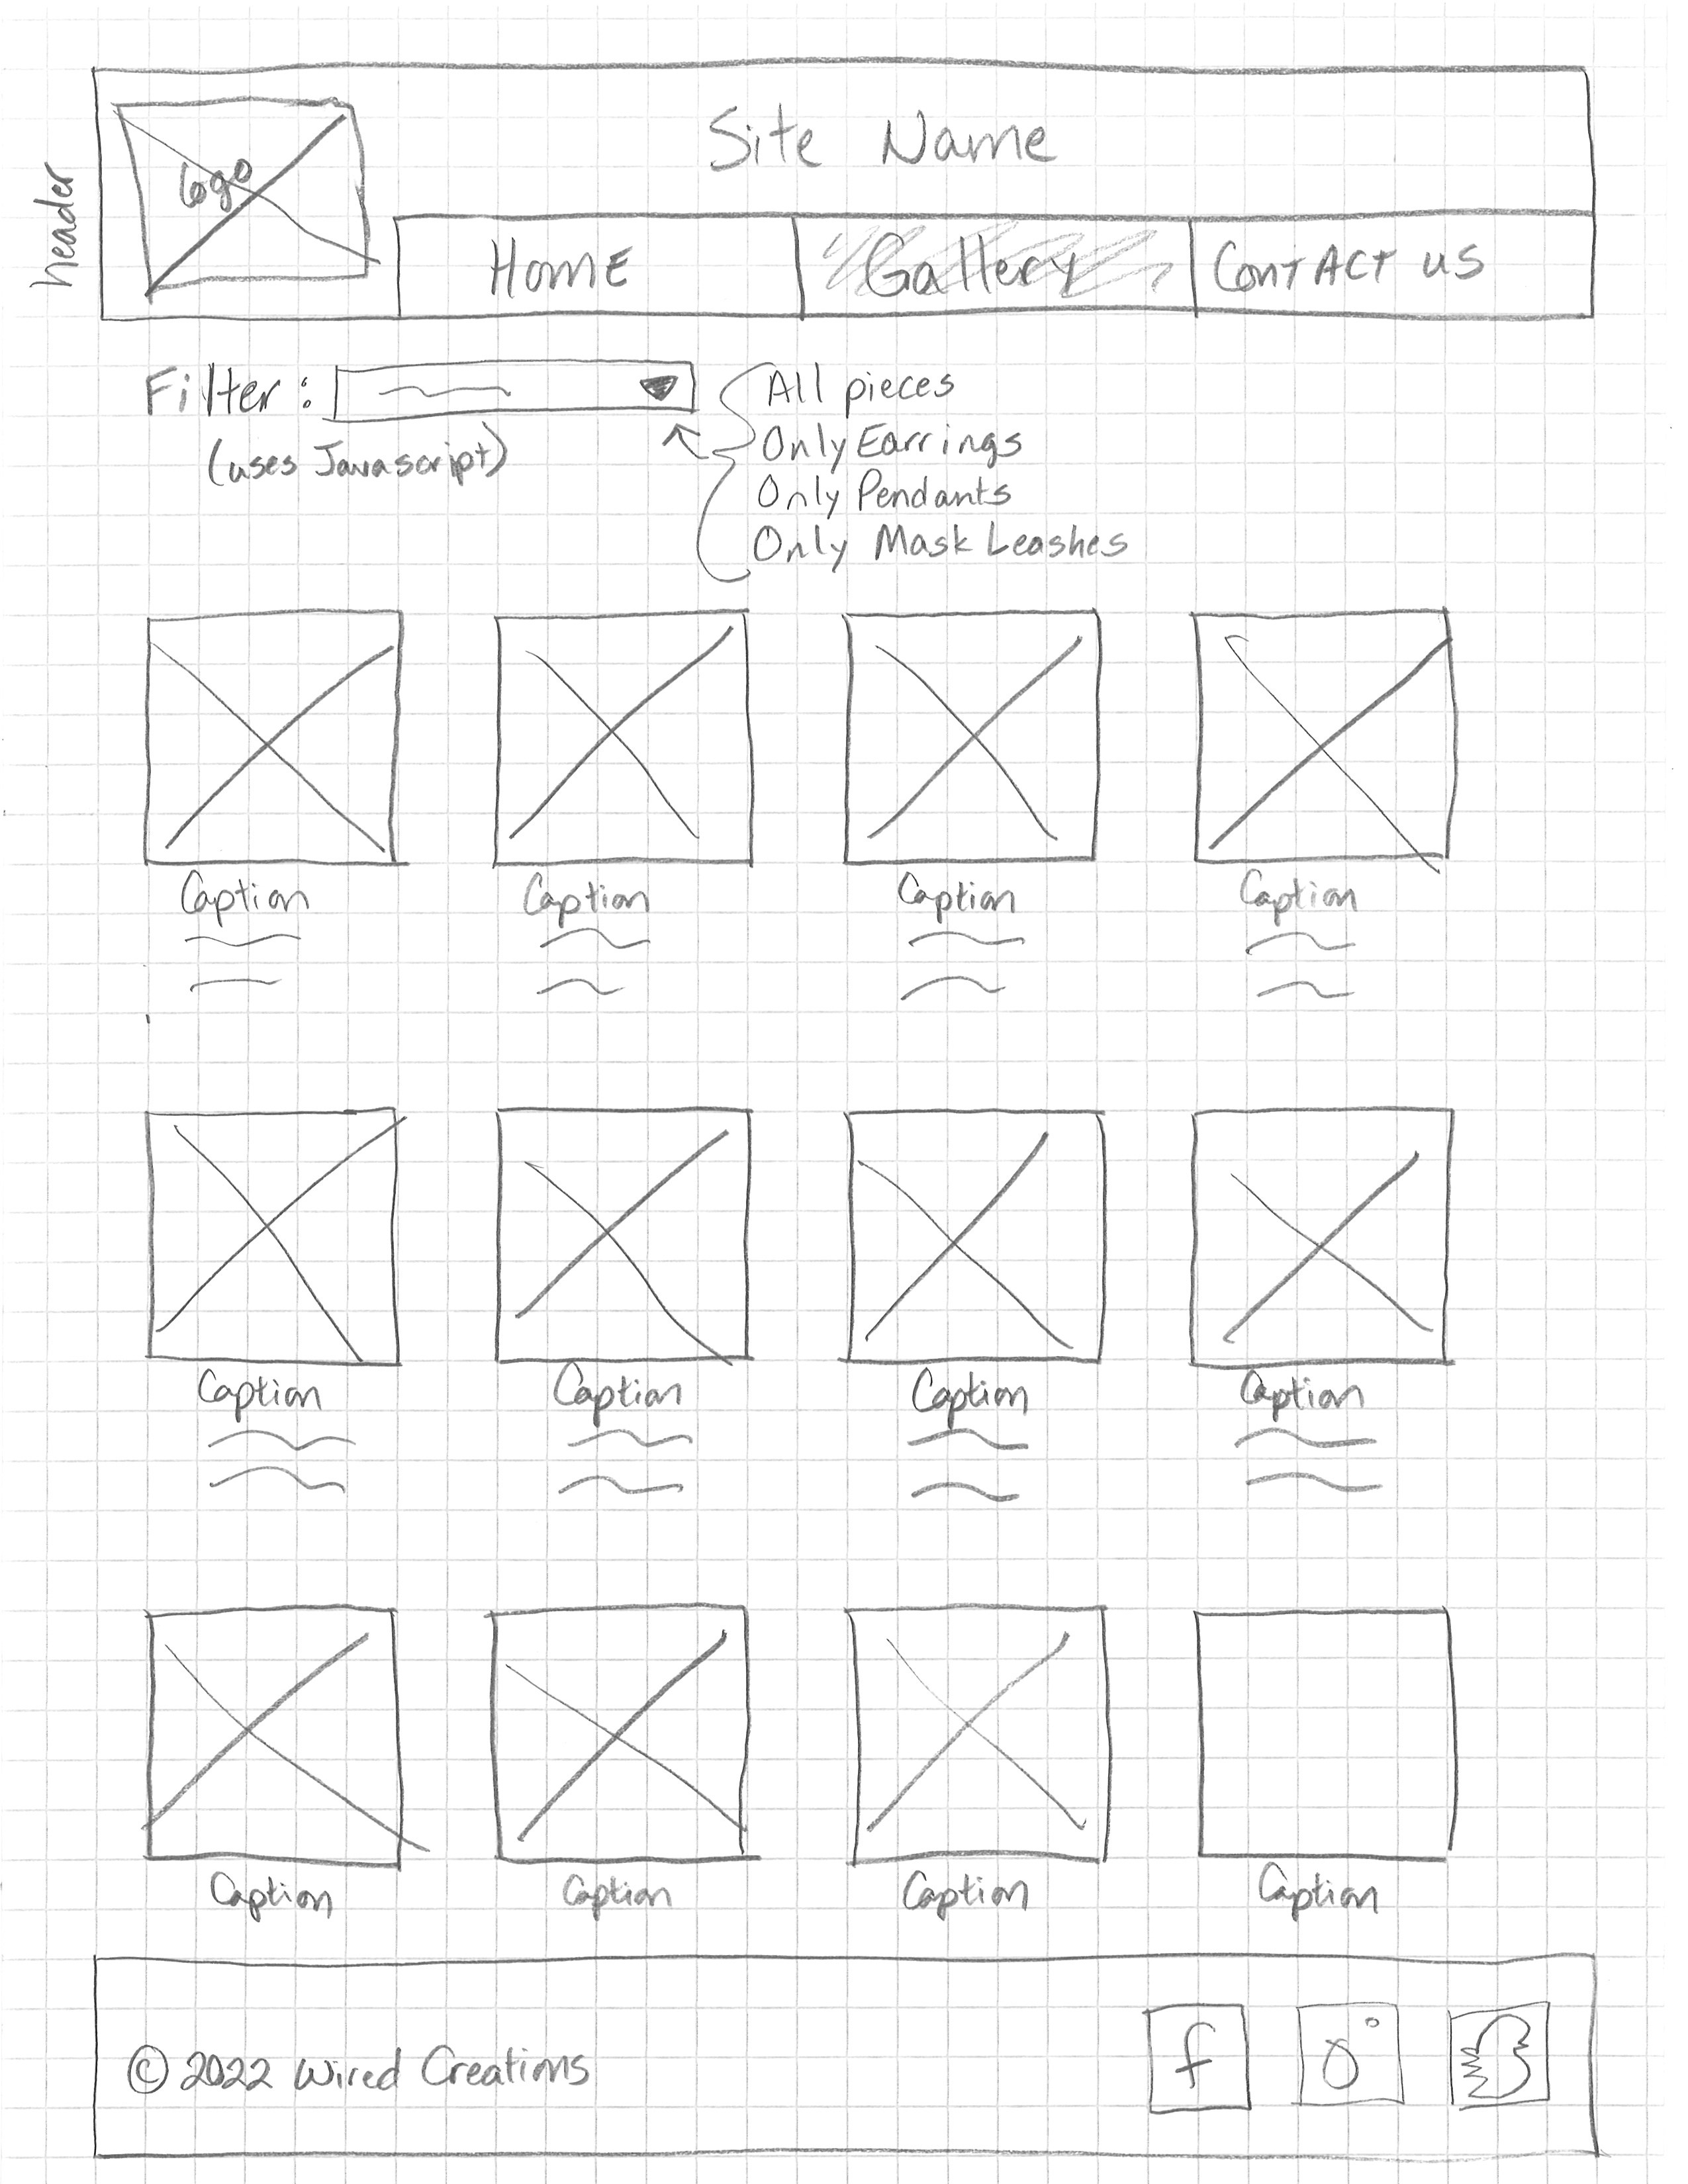 header
Logo
Site Name
Home Gallery Contact us
Filter:
(uses Javascript)
All pieces
Only Earrings
Only Pendants
Only Mask Leashes
Caption Caption Caption Caption
Caption Caption Caption Caption
Caption Caption Caption Caption
© 2022 Wired Creations
f